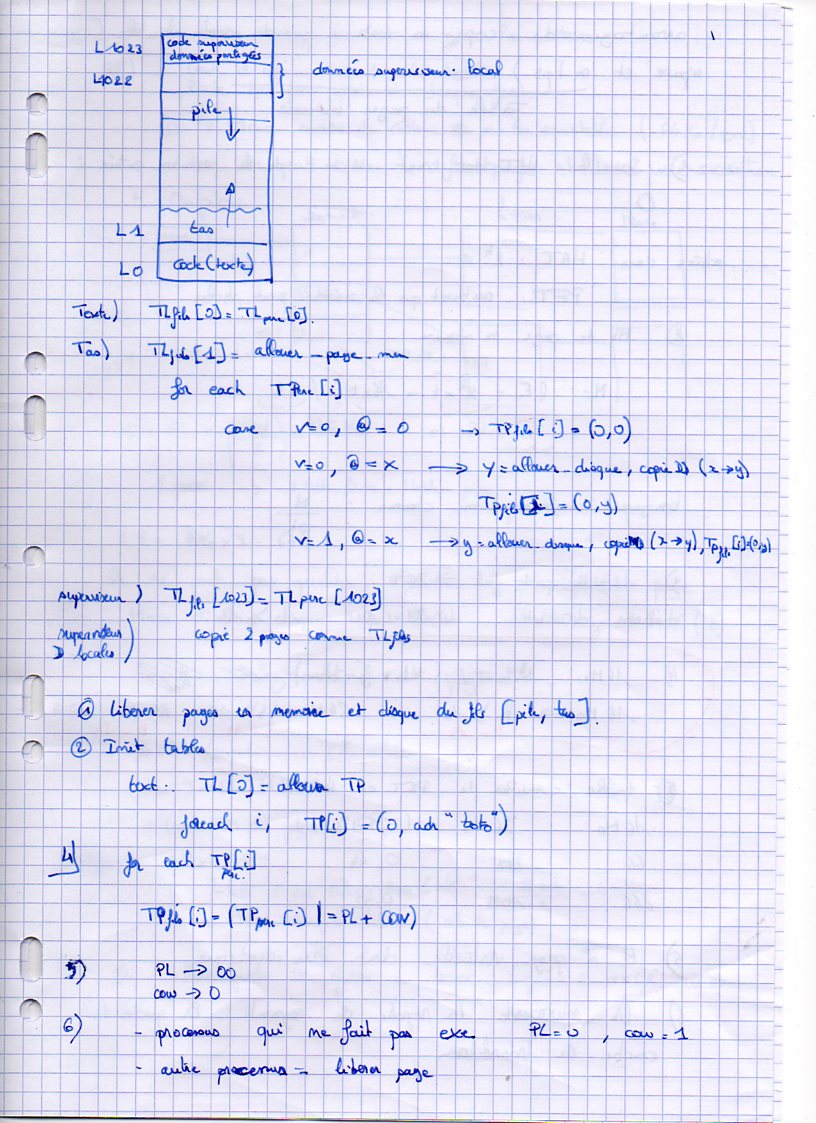 1
L1023 code superviseur
données partagées
L1022 données superviseur local
pile
L1 tas
L0 code (texte)
Texte) TLfils [0] = TLpere [0].
Tas) TLfils [1] = allouer_page_mem
for each TPere [i]
case v=0, @=0 → TPfils [i] = (0,0)
v=0, @=x → y = allouer_disque, copie (x→y)
TPfils [i] = (0,y)
v=1, @=x → y = allouer_disque, copie (x→y), TPfils [i]=(0,y)
superviseur) TLfils [1023] = TLpere [1023]
superviseur copie 2 pages comme TLfils
D locales)
① Liberer pages en memoire et disque du fils [pile, tas].
② Init tables
text.. TL[0] = allouer TP
foreach i, TP[i] = (0, adr "toto")
4 for each TP[i]
pere
TPfils [i] = (TPpere [i] |= PL + COW)
5) PL → 00
cow → 0
6) - processus qui ne fait pas exe PL=0, cow=1
- autre processus = liberer page